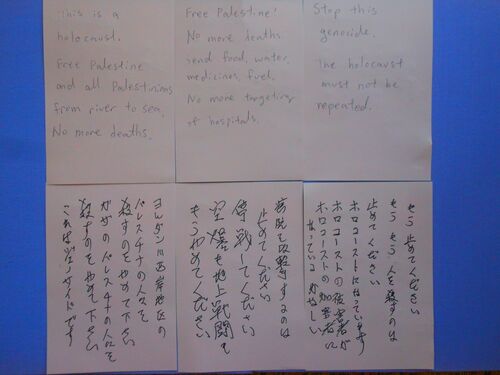 This is a
holocaust.
Free Palestine
and all Palestinians
from river to sea.
No more deaths.
Free Palestine!
No more deaths
send food, water,
medicines, fuel.
No more targeting
of hospitals.
Stop this
genocide.
The holocaust
must not be
repeated.
ヨルダン川西岸地区の
パレスチナの人々を
殺すのをやめて下さい
ガザのパレスチナの人々を
殺すのをやめて下さい
これはジェノサイドです
病院を攻撃するのは
止めてください
停戦してください
空爆も地上戦闘も
もうやめてください
止めてください
もう もう 人を殺すのは
止めてください
ホロコーストになっています
ホロコーストの被害者が
ホロコーストの加害者に
なっている おかしい